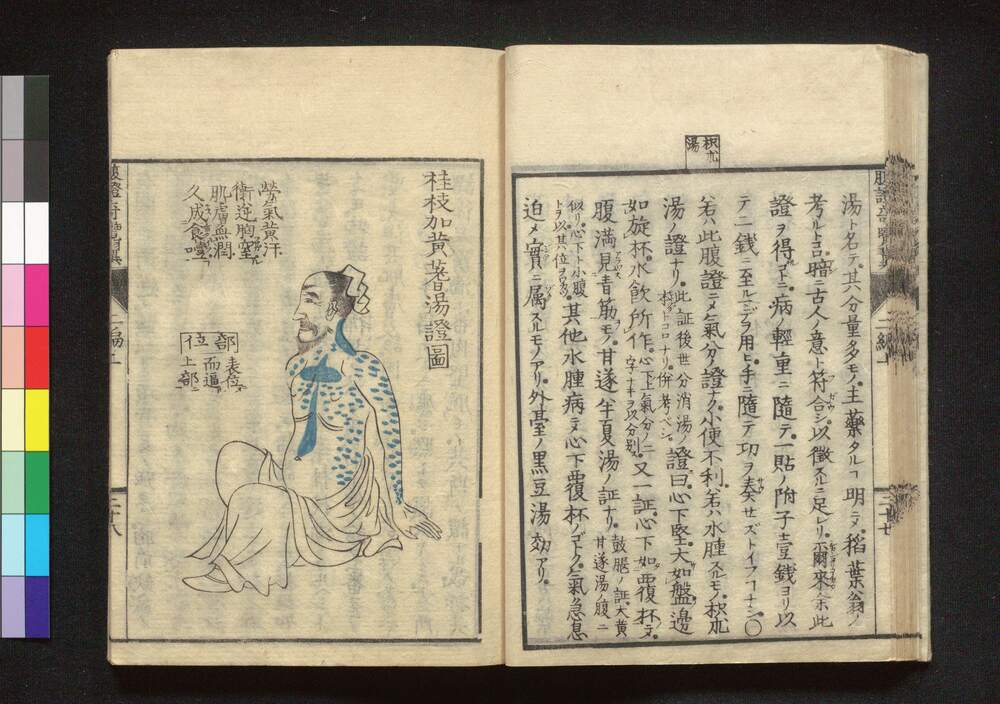 枳朮
湯
湯ト名テ其分量多モノ主藥タルヿ明ニメ稻葉翁ノ
考ルトコロ暗ニ古人ノ意ト符合シ以徴スルニ足レリ爾來余此
證ヲ得ゴトニ病ノ輕重ニ隨テ一貼ノ附子壹錢ヨリ以
テ二錢ニ至ルマデヲ用ヒ手ニ隨テ功ヲ奏サズトイフヿナシ〇
若ハ此腹證ニメ氣分ノ證ナク小便不利若ハ水腫スルモノ枳朮
湯ノ證ナリ此証後世分消湯ノ證曰心下堅大如盤邊
如旋杯水飲所作心下氣分ノ二字ナキヲ以分別ス又一証心下如覆杯
腹滿見青筋モノ甘遂半夏湯ノ証ナリ鼓脹ノ証大黄甘遂湯ノ腹ニ
似リ心下ト小腹トヲ以其位其他水腫病ニメ心下覆杯ノゴトク氣急息
迫メ實ニ属スルモノアリ外臺ノ黒豆湯効アリ
二十七
桂枝加黄蓍湯證圖
營氣黄汗
衛逆胸窒
肌膚無潤
久成食噎
部位
表位
而逼
上部
二十八